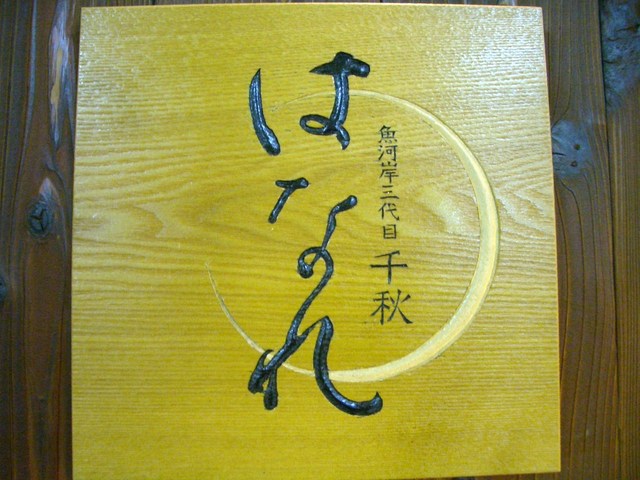 魚河岸三代目 千秋
はなれ